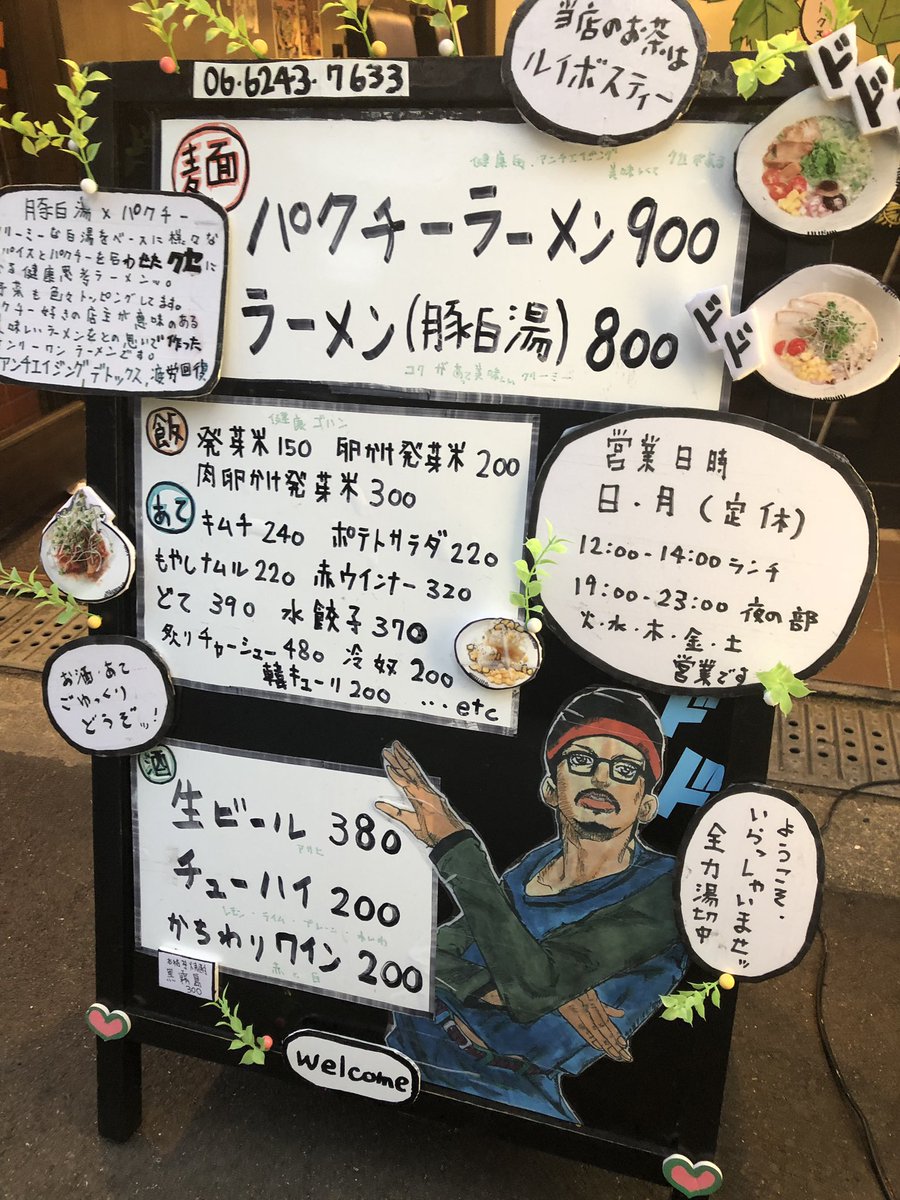 06.6243.7633
当店のお茶は
ルイボスティー
麺
パクチーラーメン 900
ラーメン(豚白湯) 800
コクがあって美味しい クリーミー
ド
ド
ド
ド
豚白湯×パクチー
リーミーな白湯をベースに様々な
パイスとパクチーを合わせたクセに
る健康思考ラーメンッ。
野菜も色々トッピングしてます。
クチー好きの店主が意味のある
味しいラーメンをとの思いで作った
ンリーワンラーメンです。
アンチエイジング,デトックス,疲労回復
飯
健康ゴハン
発芽米150 卵かけ発芽米200
肉卵かけ発芽米300
あて
キムチ240 ポテトサラダ220
もやしナムル220 赤ウインナー320
どて390 水餃子370
炙りチャーシュー480 冷奴200
韓キューリ200 ...etc
営業日時
日・月(定休)
12:00-14:00ランチ
19:00-23:00夜の部
火・水・木・金・土
営業です
お酒・あて
ごゆっくり
どうぞッ!
酒
生ビール 380
アサヒ
チューハイ 200
レモン・ライム・プレーン
かちわりワイン 200
赤と白
黒霧島
300
ド
ド
ようこそ・
いらっしゃいませッ
全力湯切中
welcome